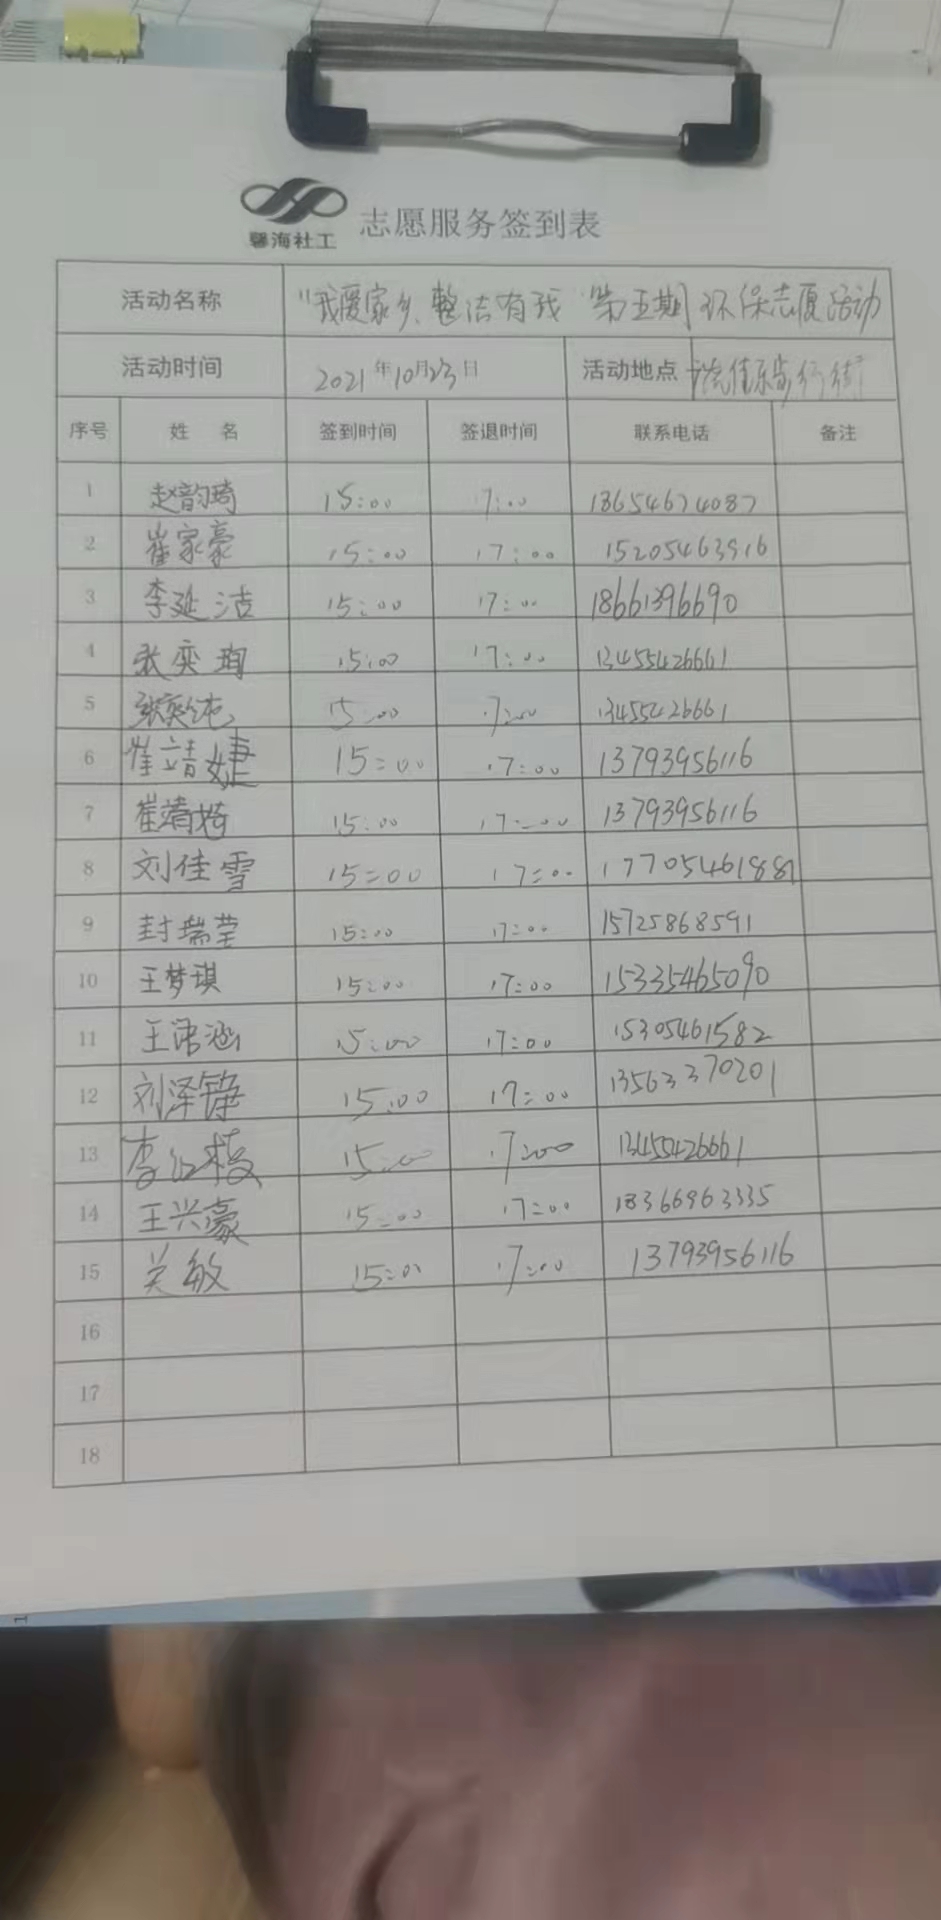 馨海社工 志愿服务签到表
活动名称 "我爱家乡、整洁有我"第五期环保志愿活动
活动时间 2021年10月23日 活动地点 步行街
序号 姓 名 签到时间 签退时间 联系电话 备注
1 赵韵琦 15:00 17:00 13654674087
2 崔家豪 15:00 17:00 15205463916
3 李延洁 15:00 17:00 18661396690
4 张奕珣 15:00 17:00 13455426661
5 张奕纯 15:00 17:00 13455426661
6 崔靖婕 15:00 17:00 13793956116
7 崔靖 15:00 17:00 13793956116
8 刘佳雪 15:00 17:00 17705461887
9 封瑞莹 15:00 17:00 15725868591
10 王梦琪 15:00 17:00 15335465090
11 王涵 15:00 17:00 15305461582
12 刘泽铮 15:00 17:00 13563370201
13 李红梅 15:00 17:00 13455426661
14 王兴豪 15:00 17:00 18366963335
15 关敏 15:00 17:00 13793956116
16
17
18